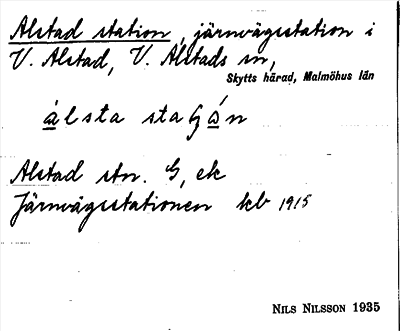 Alstad station, järnvägsstation i
V. Alstad, V. Alstads sn,
Skytts härad, Malmöhus län
álsta staʃón
Alstad stn. G, ek
Järnvägsstationen kb 1915
NILS NILSSON 1935